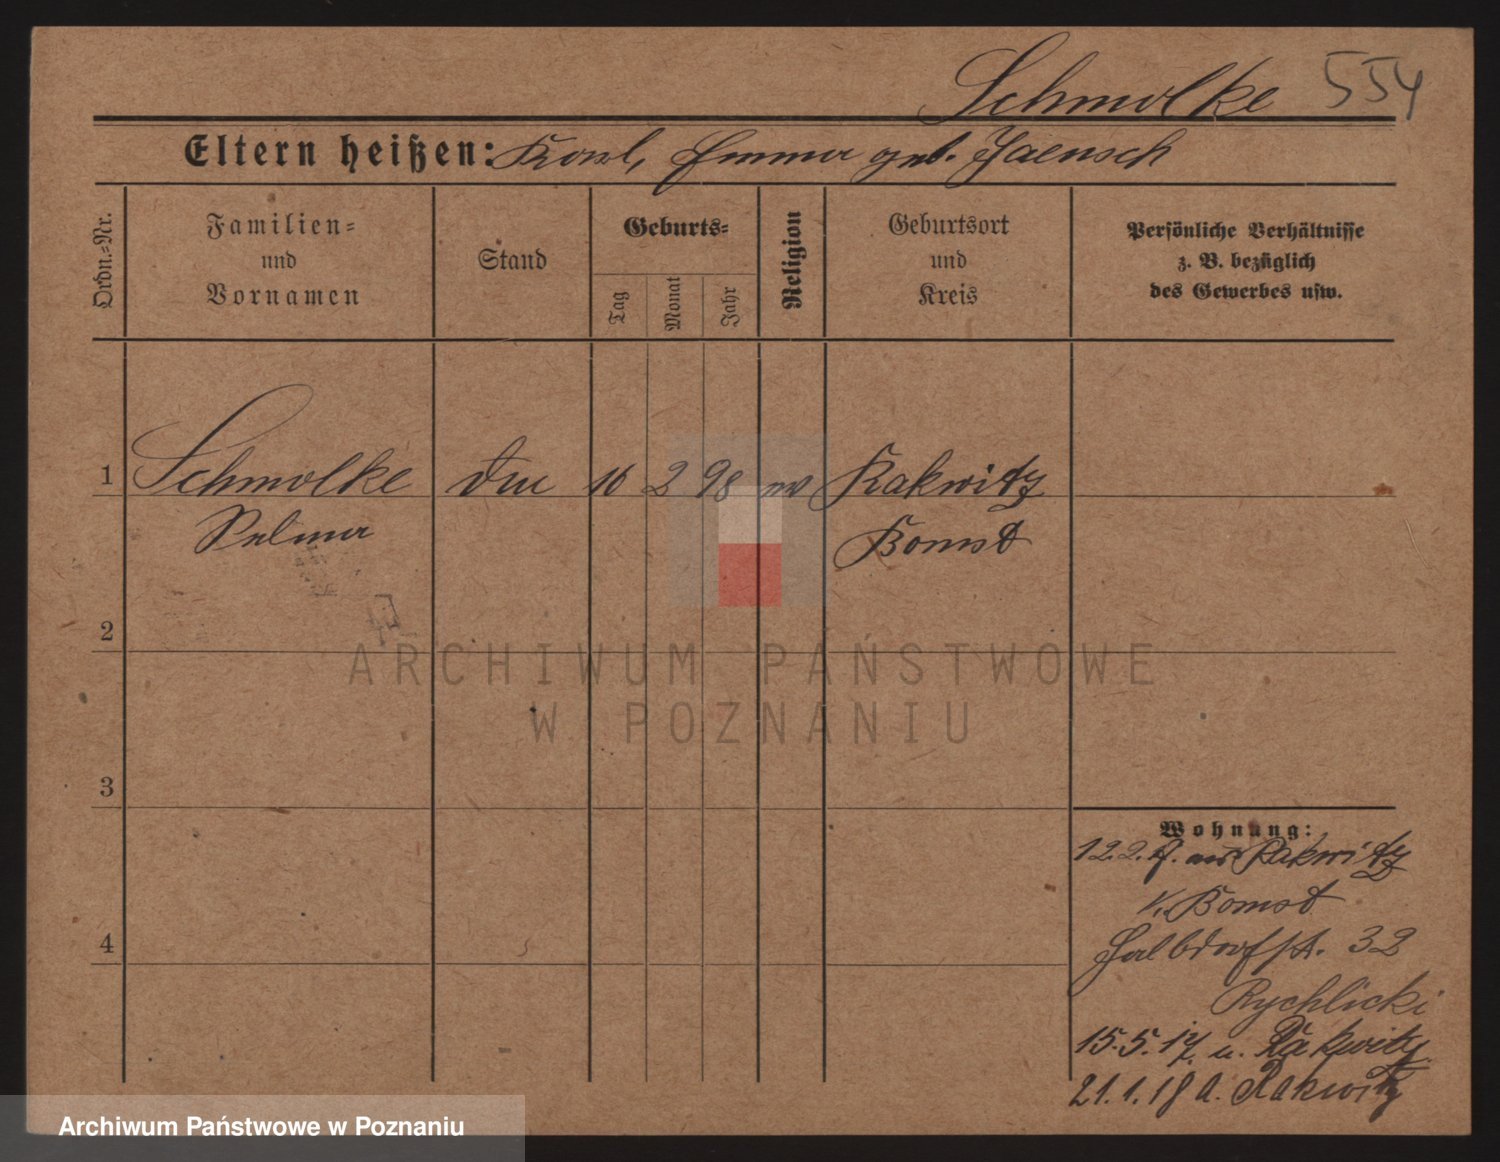 Schmolke 554
Eltern heißen: Karl, Emma geb. Jaensch
Ordn.-Nr.
Familien-
und
Vornamen
Stand
Geburts-
Tag
Monat
Jahr
Religion
Geburtsort
und
Kreis
Persönliche Verhältnisse
z. B. bezüglich
des Gewerbes usw.
1 Schmolke 16 2 98 ev Rakwitz
Selma Bomst
2
3
4
Wohnung:
12.2. aus Rakwitz
K. Bomst
Halbdorfst. 32
Rychlicki
15.5.17 n. Rakwitz
21.1.18 a. Rakwitz
ARCHIWUM PAŃSTWOWE
W POZNANIU
Archiwum Państwowe w Poznaniu